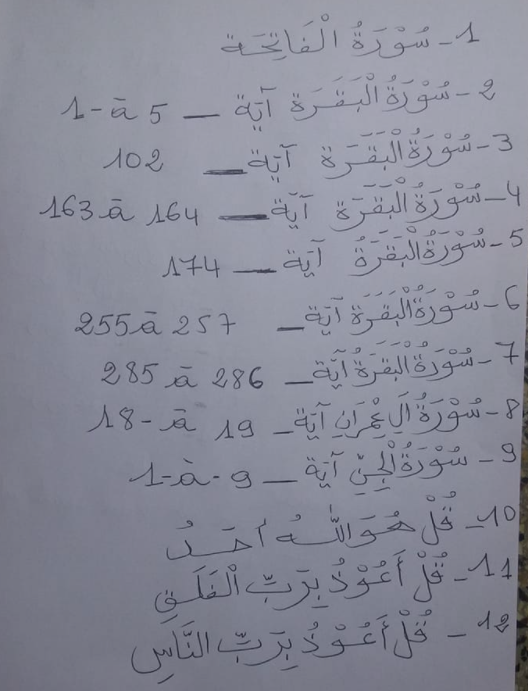 1- سُوْرَةُ الْفَاتِحَة
2- سُوْرَةُ الْبَقَرَة آيَة — 1-à 5
3- سُوْرَةُ الْبَقَرَة آيَة — 102
4- سُوْرَةُ الْبَقَرَة آيَة — 163 à 164
5- سُوْرَةُ الْبَقَرَةُ آيَة — 174
6- سُوْرَةُ الْبَقَرَة آيَة — 255 à 257
7- سُوْرَةُ الْبَقَرَةُ آيَة — 285 à 286
8- سُوْرَةُ آلِ عِمْرَانِ آيَة — 18-à 19
9- سُوْرَةُ الْجِنِّ آيَة — 1-à-9
10- قُلْ هُوَ اللّٰهُ أَحَدُ
11- قُلْ أَعُوْذُ بِرَبِّ الْفَلَقِ
12- قُلْ أَعُوْذُ بِرَبِّ النَّاسِ